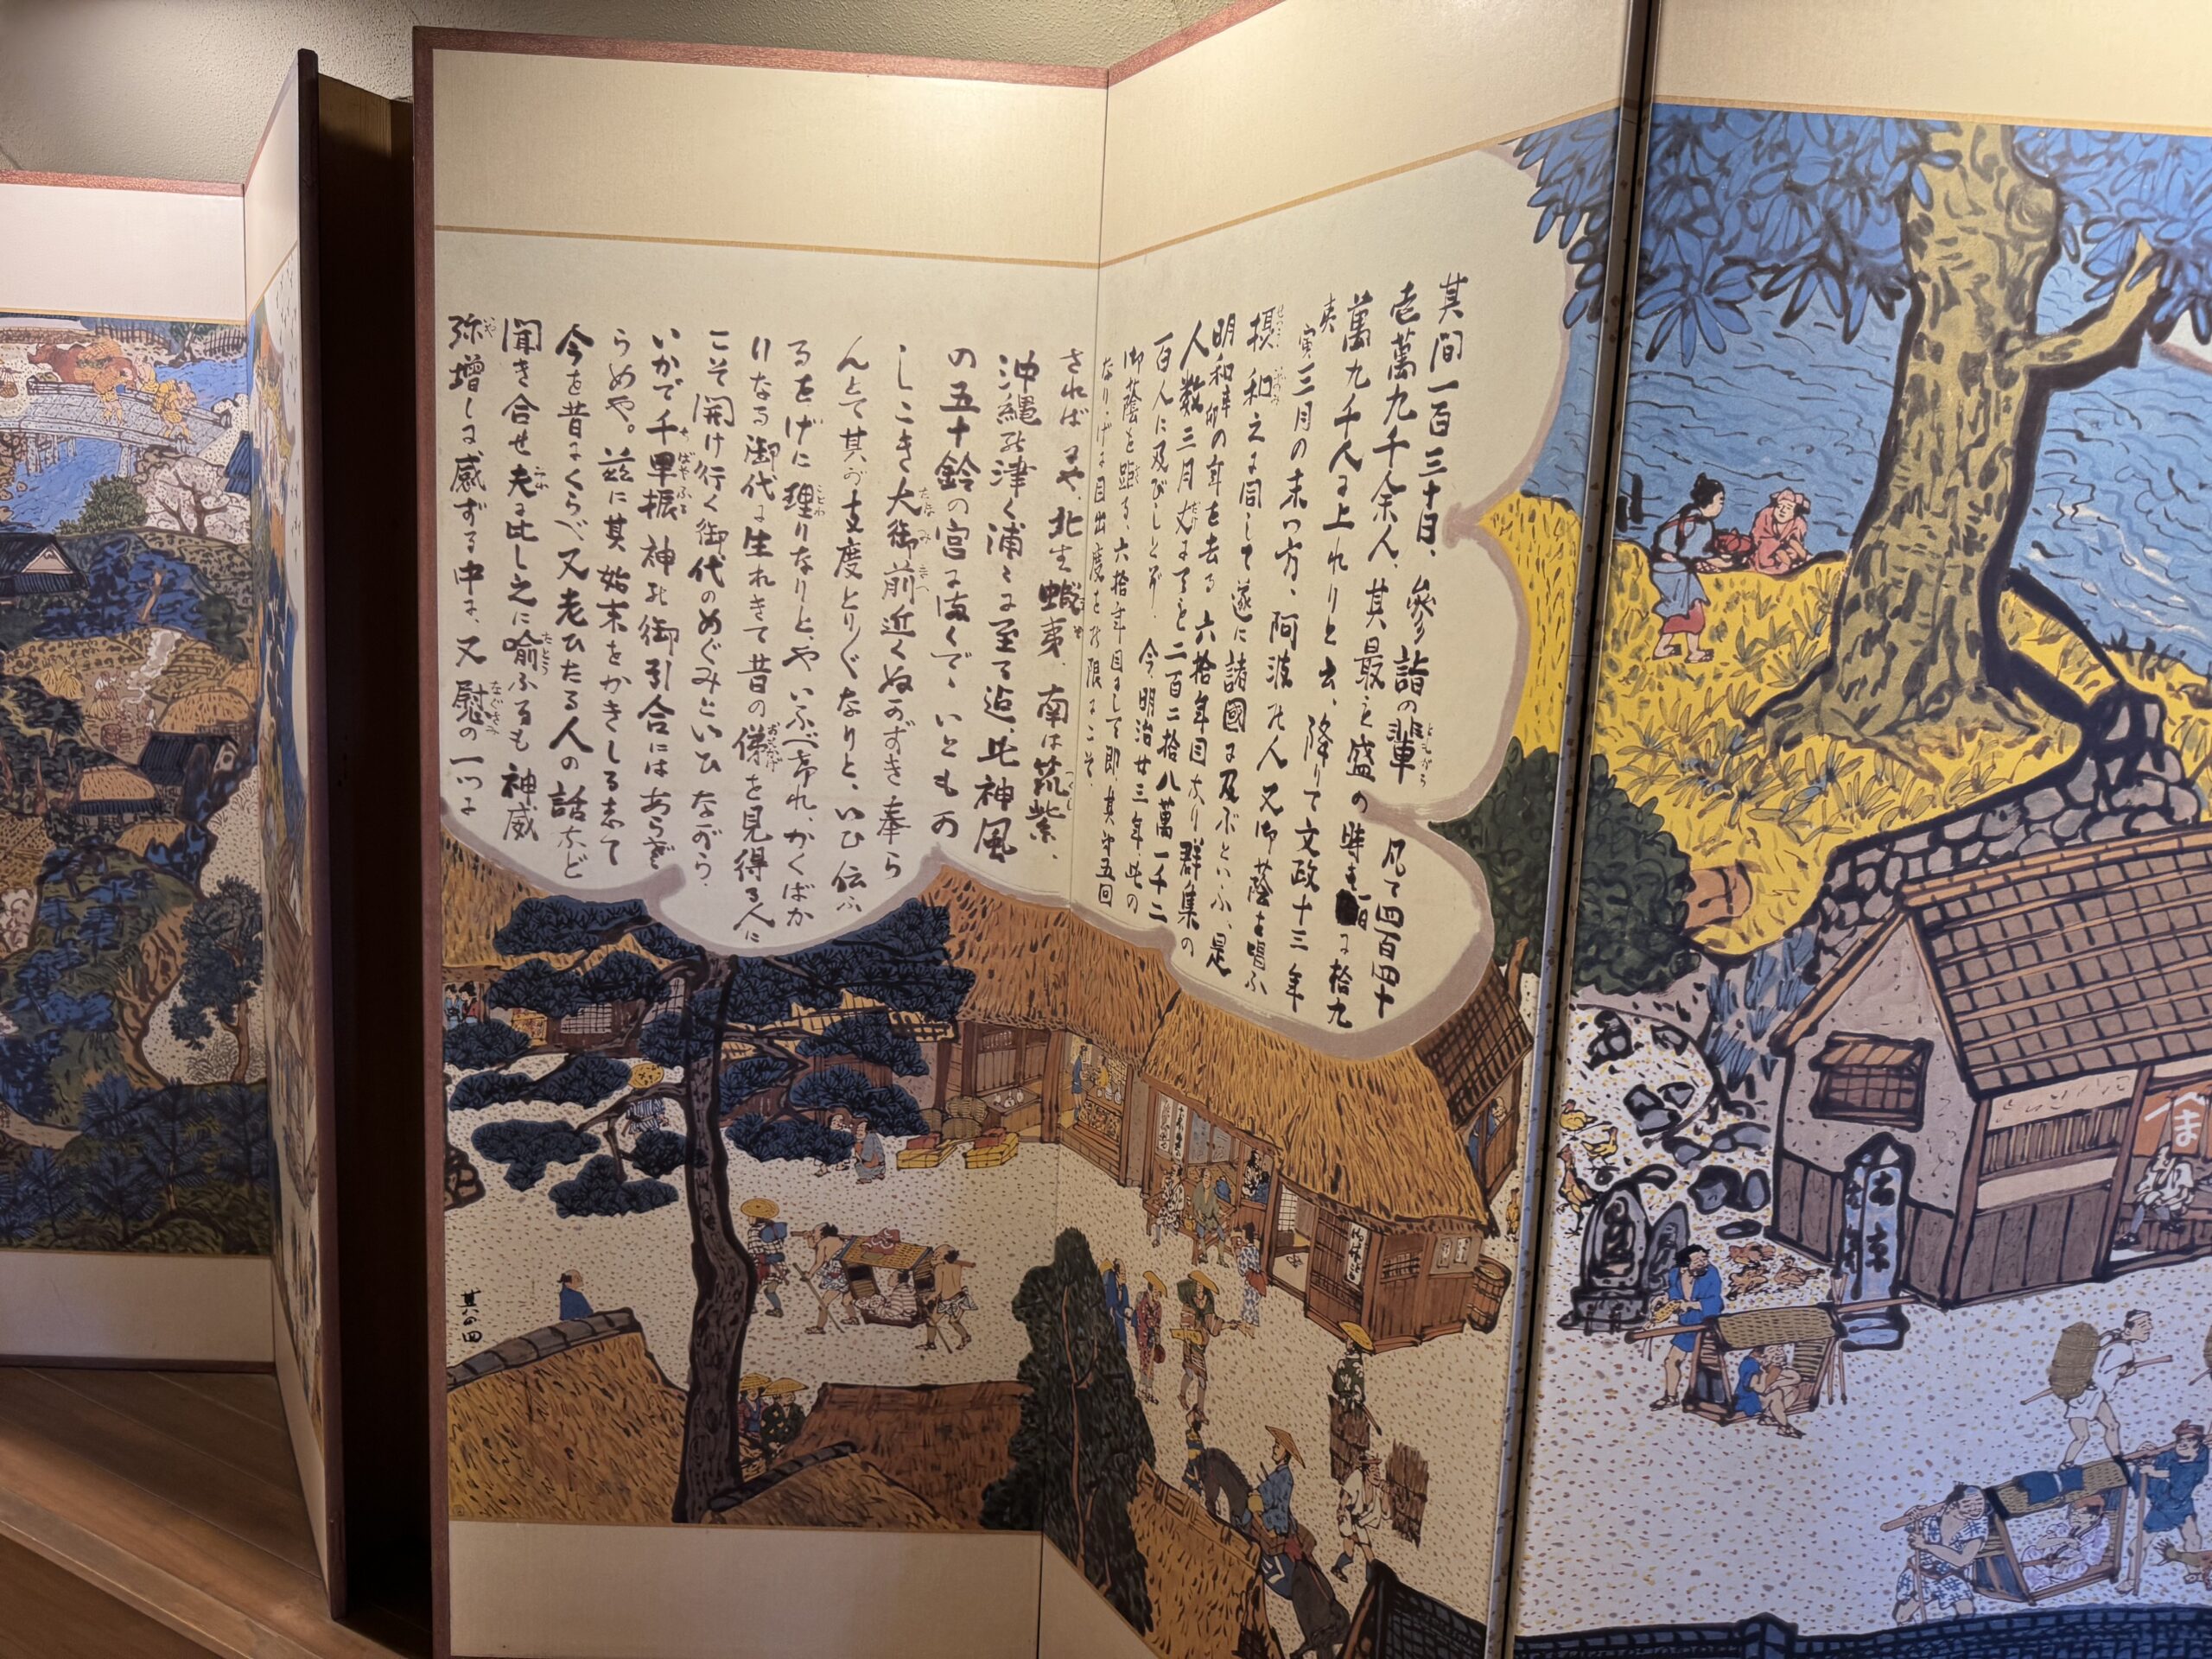 其間一百三十日、參詣の輩 凡て四百四十
壱萬九千余人、其最も盛の時を一日に拾九
萬九千人に上れりと云、降りて文政十三年
庚寅三月の末つ方、阿波の人又御蔭を唱ふ
摂和之に同して遂に諸國に及ぶといふ、是
明和辛卯の年を去る六拾年目なり群集の
人数三月丈にても二百二拾八萬一千二
百人に及びしとぞ、今明治廿三年此の
御蔭を距る、六拾年目にして即其第五回
なりげに目出度を限にこそ、
さればにや、北は蝦夷、南は筑紫、
沖縄の津く浦々に至る迄、此神風
の五十鈴の宮に
しこき大御前近くぬかずき奉ら
んとて其が支度とり／＼なりと、いひ伝ふ
るをげに理りなりとや いふべ かくばか
りなる御代に生れきて昔の俤を見得る人に
こそ 開け行く御代のめぐみといひながら、
いかで千早振神の御引合にはあらざ
らめや。茲に其始末をかきしるして
今を昔にくらべ又老ひたる人の話など
聞き合せ夫に比し之に喩ふるも 神威
弥増しに感ずる中に、又慰の一つに
其の四
御休